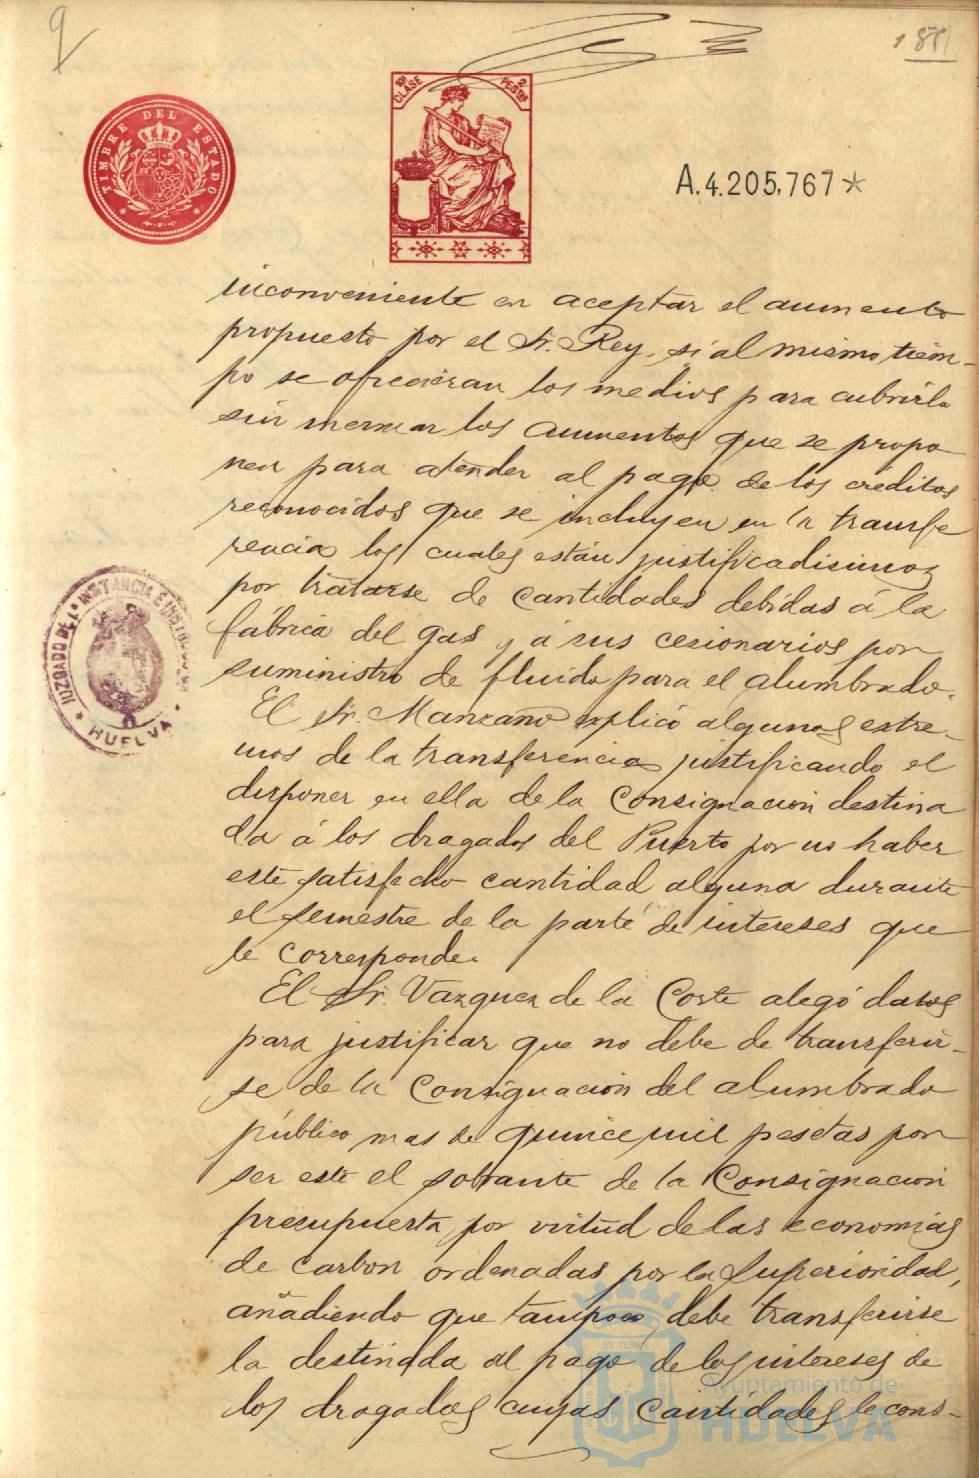 9
181
TIMBRE DEL ESTADO
10ª CLASE
2 PESETAS
A.4.205,767*
inconveniente en aceptar el aumento
propuesto por el Sr. Rey, si al mismo tiem-
po se ofrecieran los medios para cubrirlo
sin mermar los aumentos que se propo
nen para atender al pago de los créditos
reconocidos que se incluyen en la transfe
rencia los cuales están justificadisimos
por tratarse de cantidades debidas á la
fábrica del gas y á sus cesionarios por
suministro de fluido para el alumbrado.
El Sr. Manzano explicó algunos extre-
mos de la transferencia justificando el
disponer en ella de la consignación destina
da á los dragados del Puerto por no haber
este satisfecho cantidad alguna durante
el semestre de la parte de intereses que
le corresponde.
El Sr. Vazquez de la Corte alegó datos
para justificar que no debe de transferir-
se de la Consignación del alumbrado
público mas de quince mil pesetas por
ser este el sobrante de la Consignación
presupuesta por virtud de las economías
de carbon ordenadas por la Superioridad,
añadiendo que tampoco debe transferirse
la destinada al pago de los intereses de
los dragados cuyas cantidades le cons-
JUZGADO DE 1ª INSTANCIA É INSTRUCCION
HUELVA
Ayuntamiento de
HUELVA